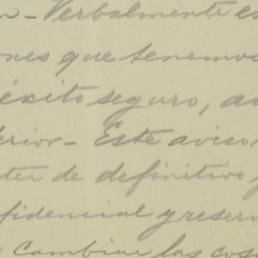 n - Verbalmente es
ones que tenemos
éxito seguro, a
erior - Este aviso
ter de definitivo y
fidencial y reser
Cambiar las cos